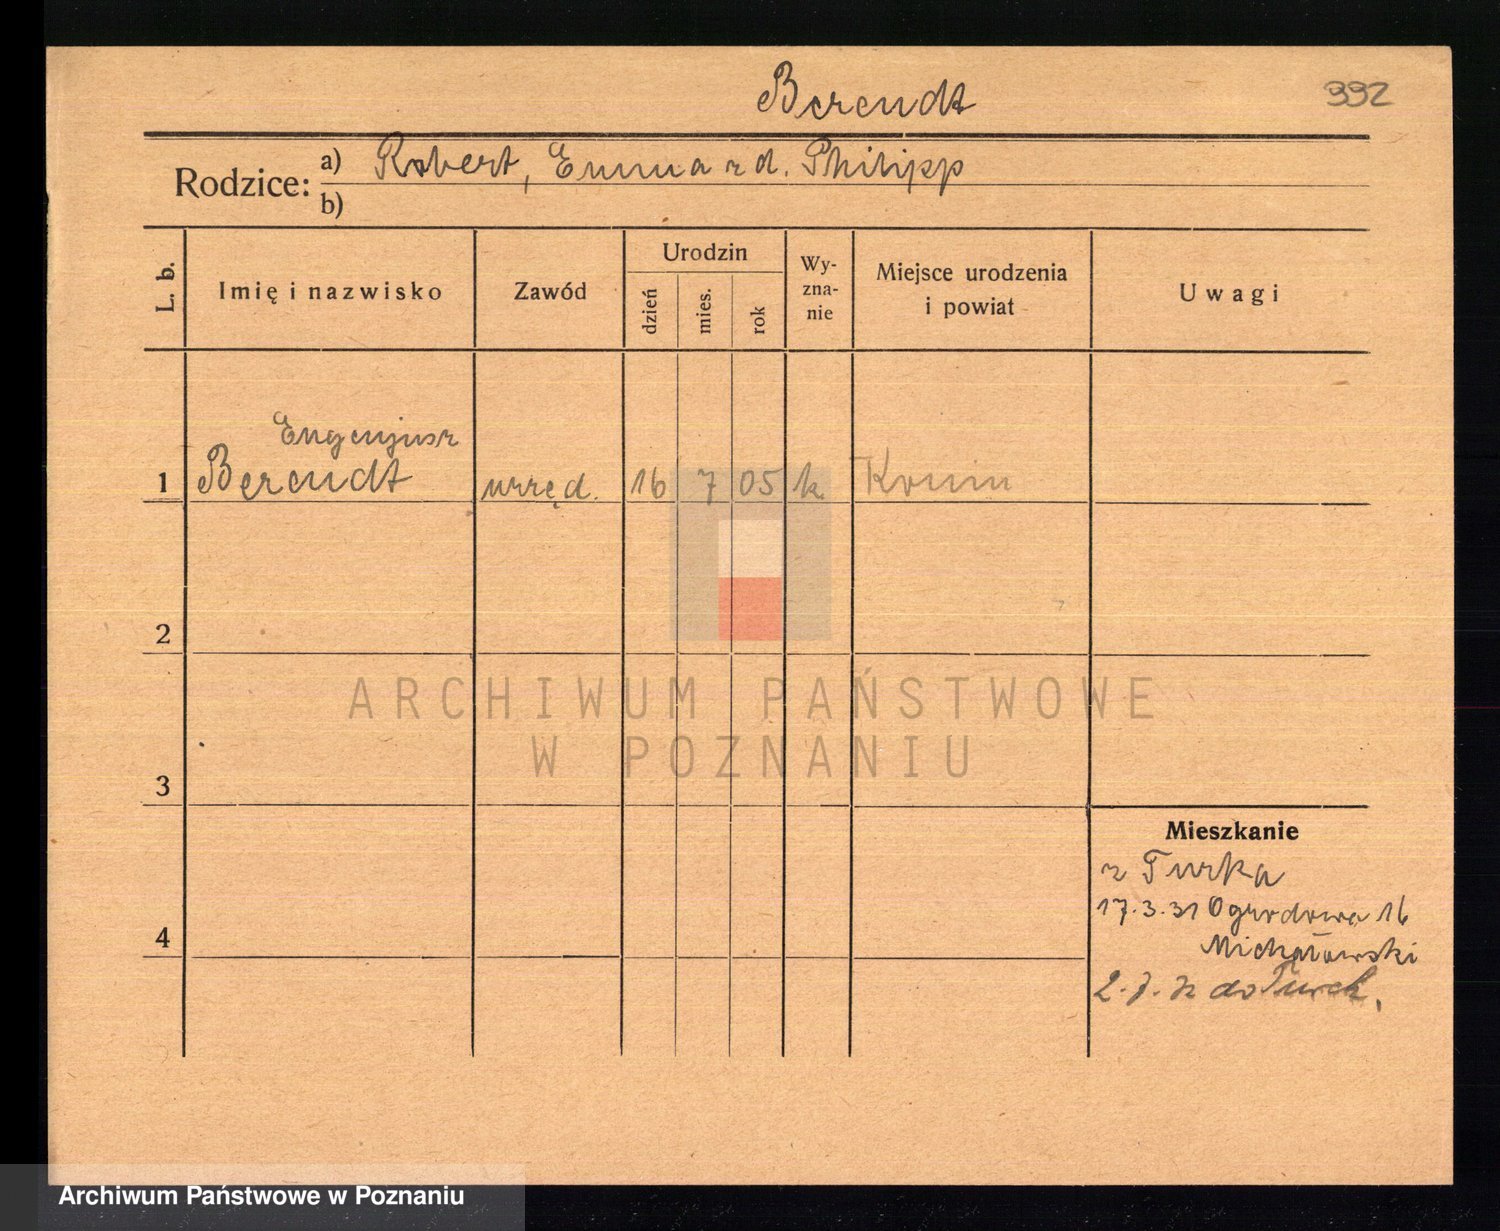 Berendt 992
Rodzice: a) Robert, Emma z d. Philipp
b)
L. b. Imię i nazwisko Zawód Urodzin dzień mies. rok Wy-zna-nie Miejsce urodzenia i powiat Uwagi
Eugenjusz
1 Berendt urzęd. 16 7 05 k Konin
2
ARCHIWUM PAŃSTWOWE
W POZNANIU
3
Mieszkanie
z Turka
17.3.31 Ogrodowa 16
4
Michałowski
2.7. do Turek.
Archiwum Państwowe w Poznaniu